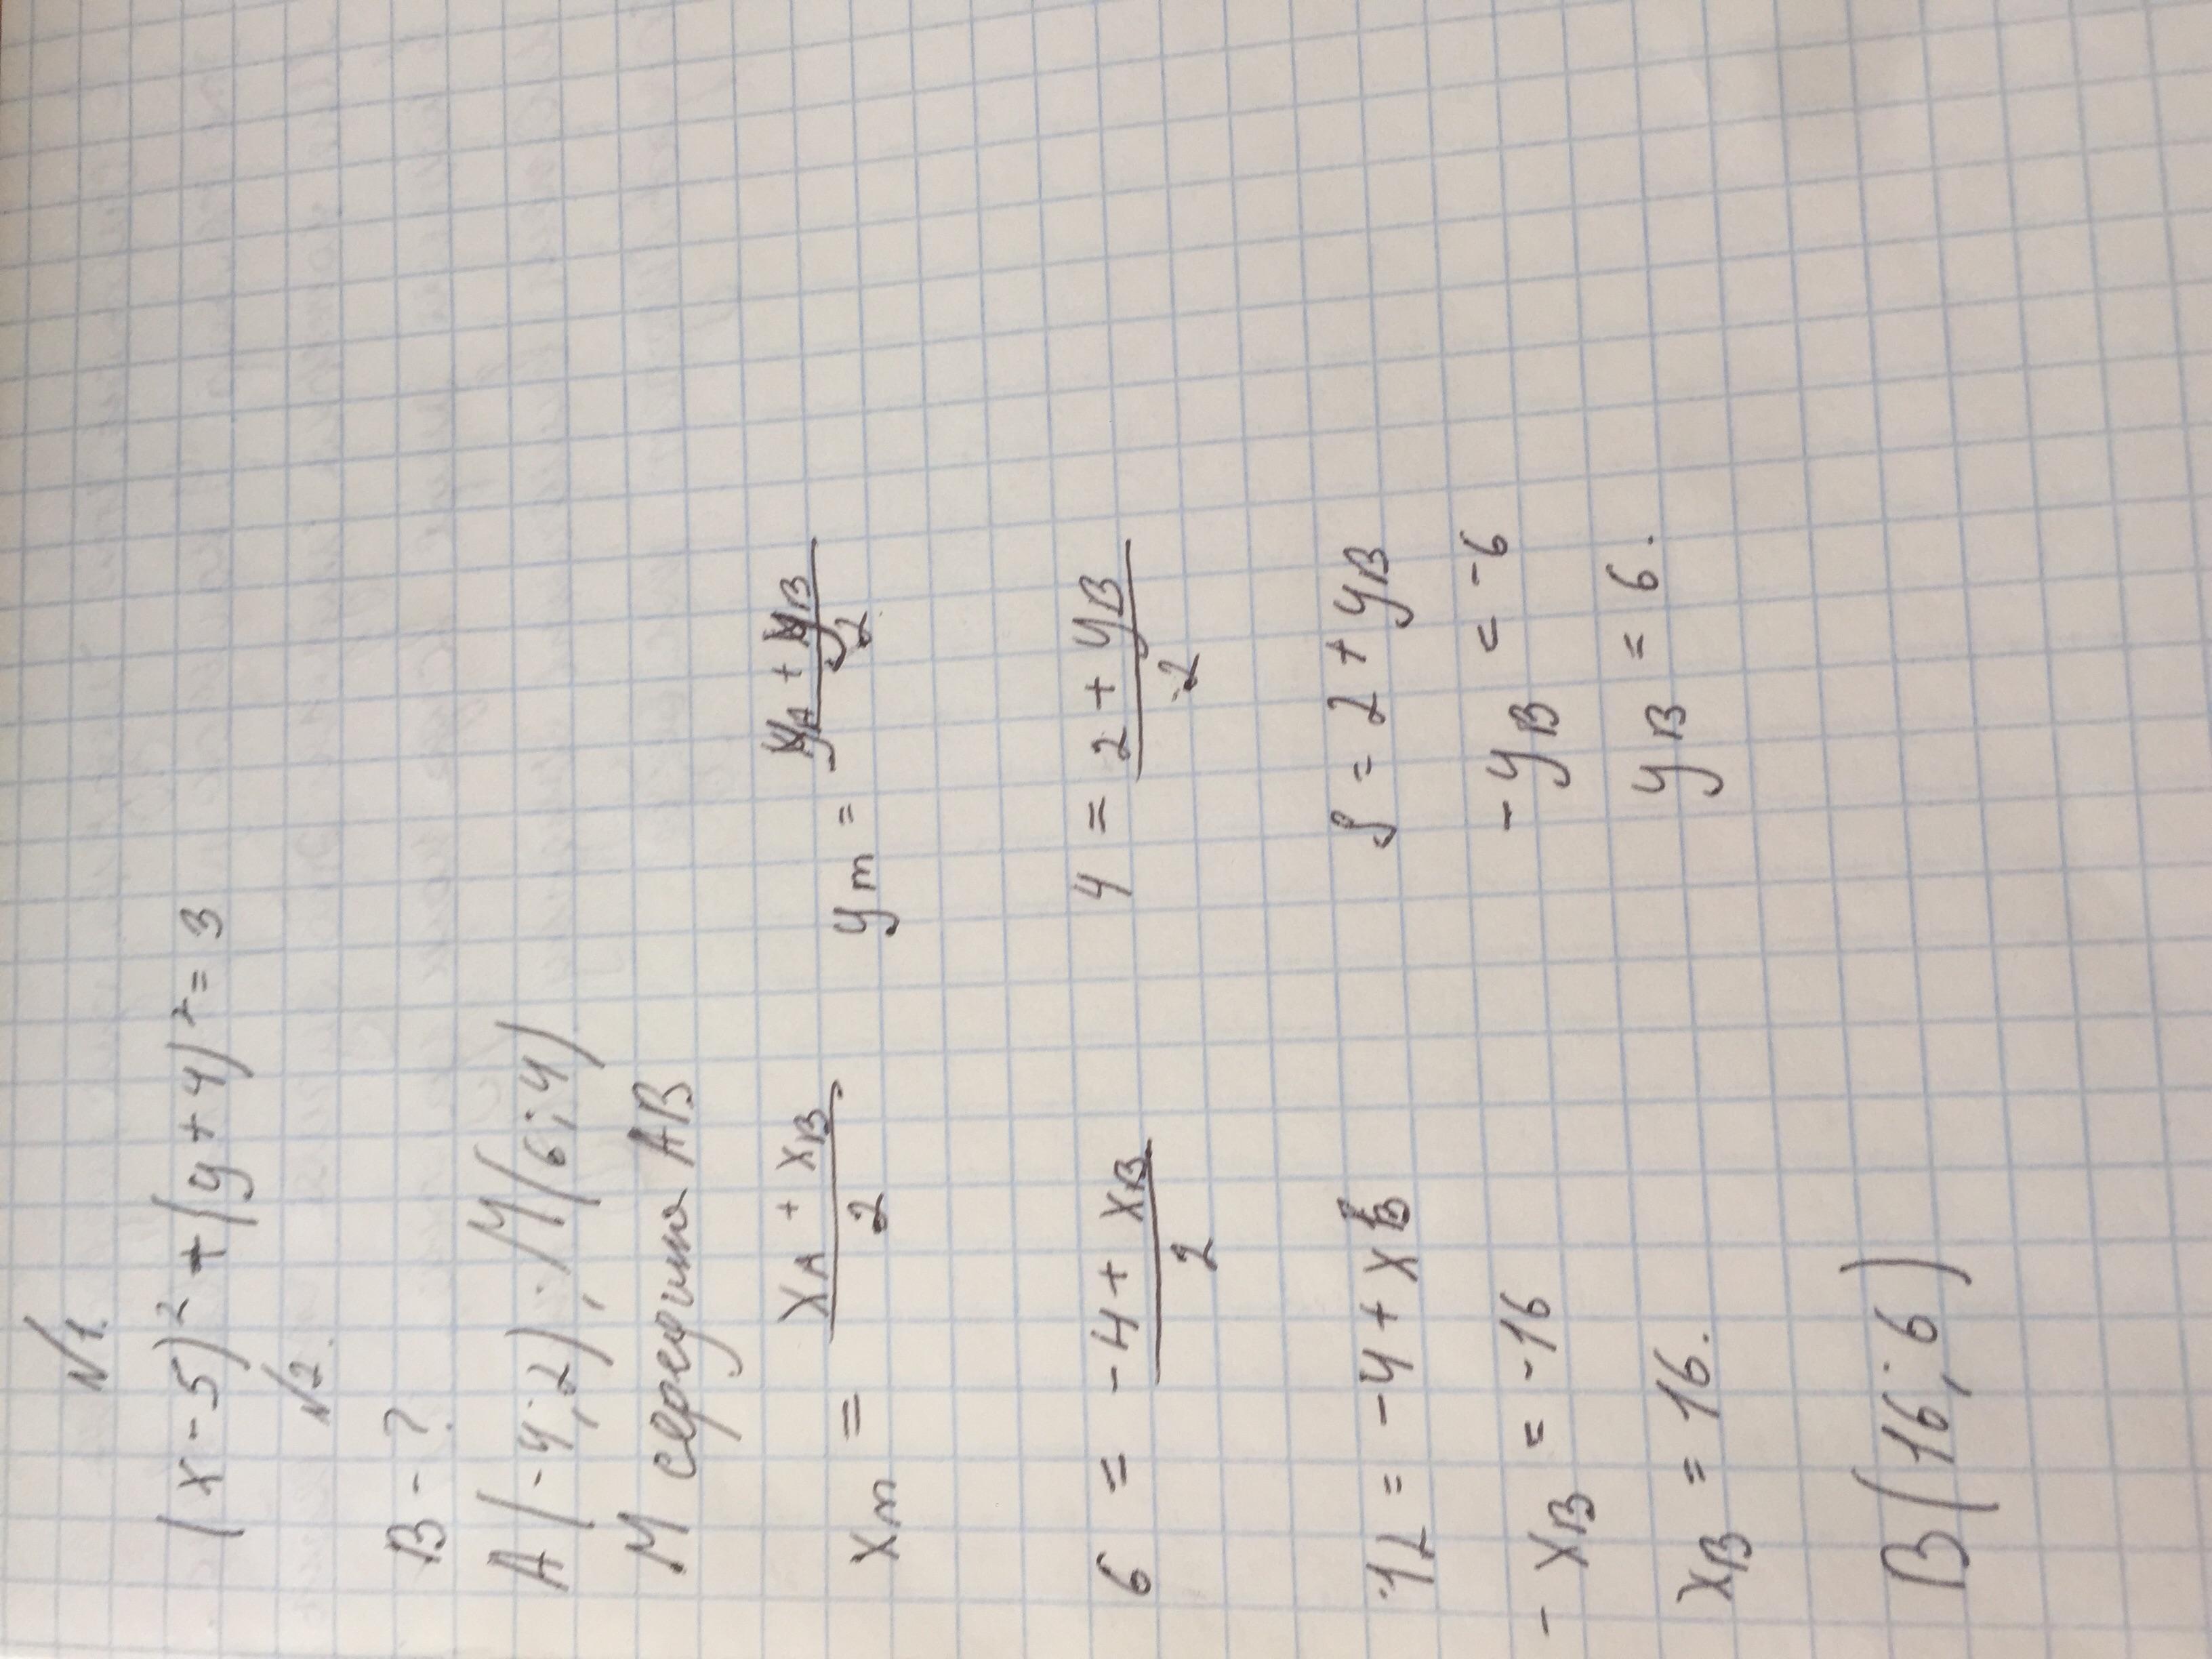 №1.
(x-5)² + (y+4)² = 3
№2.
B - ?
A(-4;2); M(6;4)
M середина AB
xm = (xA + xB)/2 ym = (yA + yB)/2
6 = (-4 + xB)/2 4 = (2 + yB)/2
12 = -4 + xB 8 = 2 + yB
- xB = -16 - yB = -6
xB = 16. yB = 6.
B(16;6)